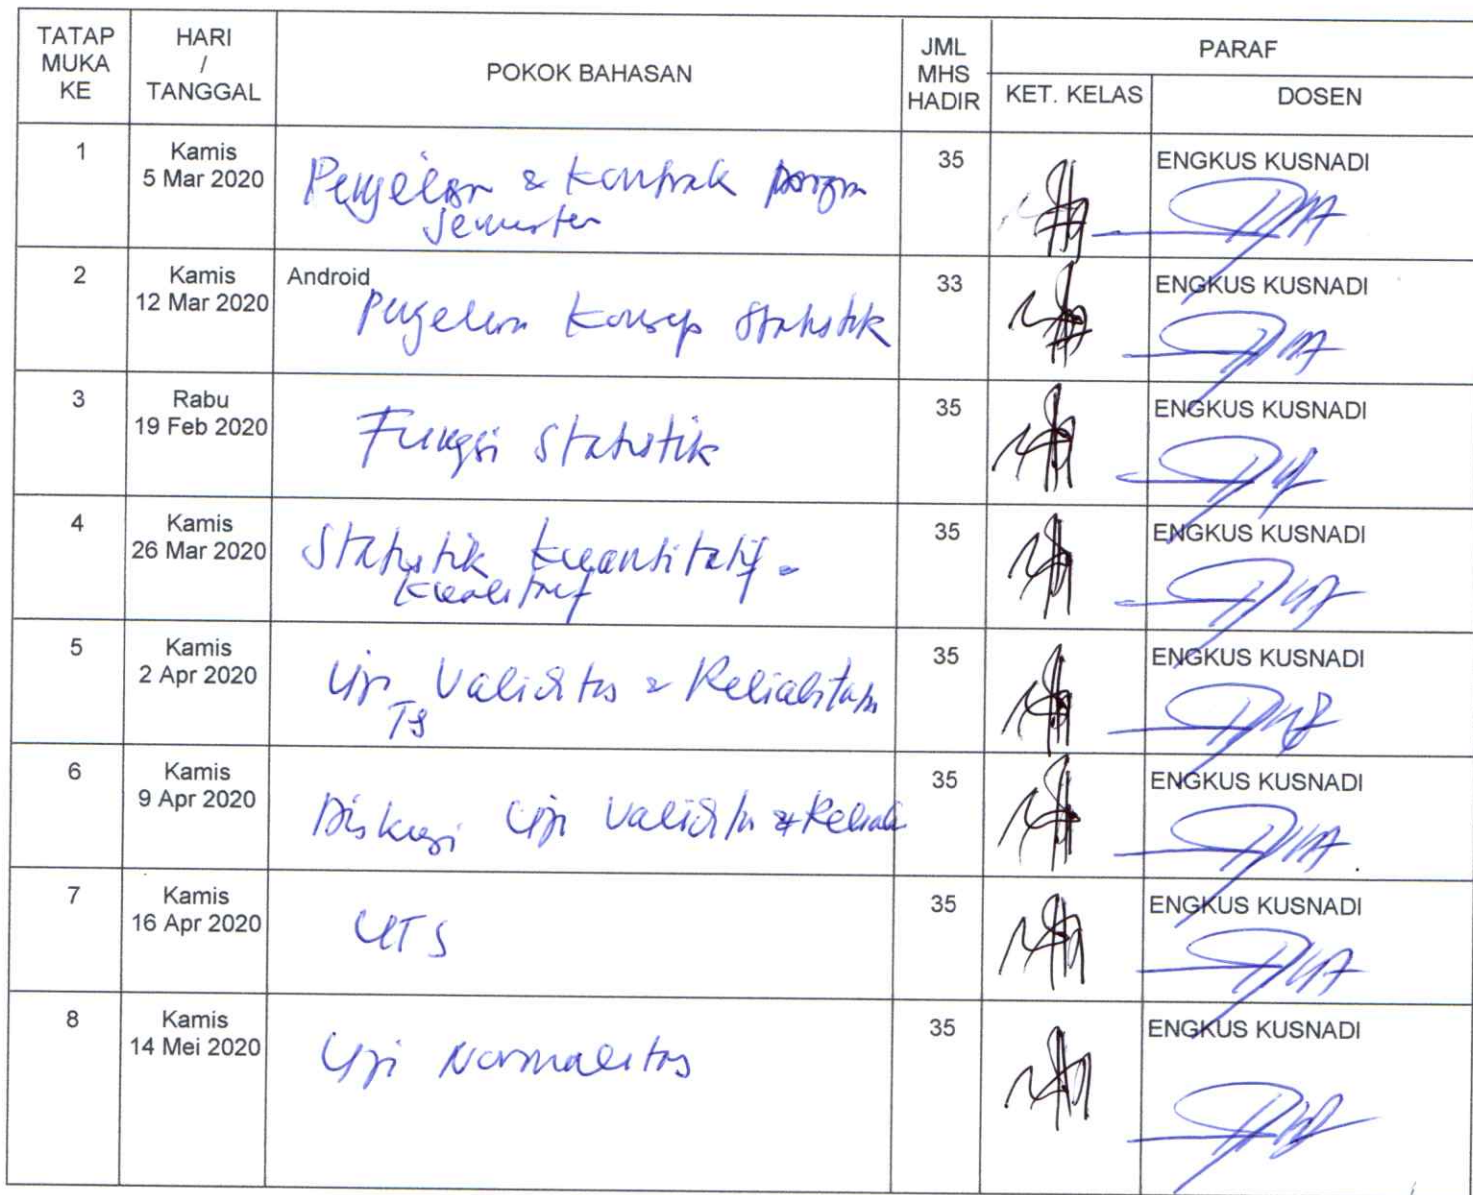 TATAP MUKA KE
HARI / TANGGAL
POKOK BAHASAN
JML MHS HADIR
PARAF
KET. KELAS
DOSEN
1
Kamis
5 Mar 2020
& Kontrak
Semester
35
ENGKUS KUSNADI
2
Kamis
12 Mar 2020
Android
Konsep Statistik
33
ENGKUS KUSNADI
3
Rabu
19 Feb 2020
Fungsi Statistik
35
ENGKUS KUSNADI
4
Kamis
26 Mar 2020
Statistik Kuantitatif -
Kualitatif
35
ENGKUS KUSNADI
5
Kamis
2 Apr 2020
Uji Validitas & Reliabilitas
35
ENGKUS KUSNADI
6
Kamis
9 Apr 2020
Diskusi Uji Validitas &
35
ENGKUS KUSNADI
7
Kamis
16 Apr 2020
UTS
35
ENGKUS KUSNADI
8
Kamis
14 Mei 2020
Uji Normalitas
35
ENGKUS KUSNADI